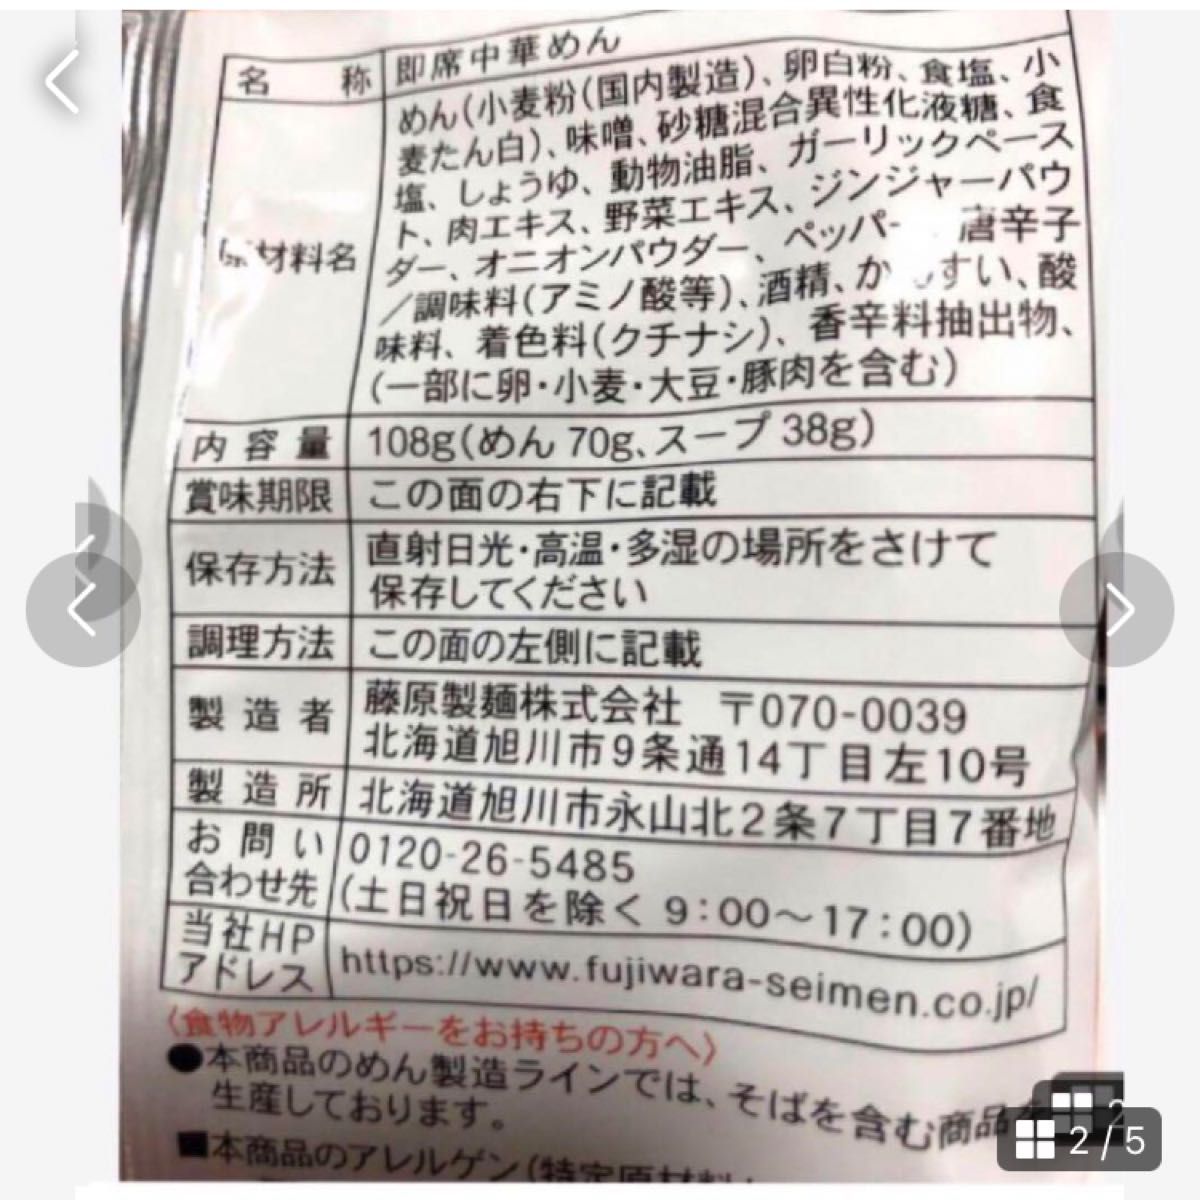 名称 即席中華めん
原材料名
めん(小麦粉(国内製造)、卵白粉、食塩、小
麦たん白)、味噌、砂糖混合異性化液糖、食
塩、しょうゆ、動物油脂、ガーリックペース
ト、肉エキス、野菜エキス、ジンジャーパウ
ダー、オニオンパウダー、ペッパー 唐辛子
/調味料(アミノ酸等)、酒精、かんすい、酸
味料、着色料(クチナシ)、香辛料抽出物、
(一部に卵・小麦・大豆・豚肉を含む)
内容量 108g(めん 70g、スープ 38g)
賞味期限 この面の右下に記載
保存方法 直射日光・高温・多湿の場所をさけて
保存してください
調理方法 この面の左側に記載
製造者 藤原製麺株式会社 〒070-0039
北海道旭川市9条通14丁目左10号
製造所 北海道旭川市永山北2条7丁目7番地
お問い合わせ先 0120-26-5485
(土日祝日を除く 9:00〜17:00)
当社HPアドレス https://www.fujiwara-seimen.co.jp/
〈食物アレルギーをお持ちの方へ〉
●本商品のめん製造ラインでは、そばを含む商品を
生産しております。
■本商品のアレルゲン(特定原材料
2 / 5